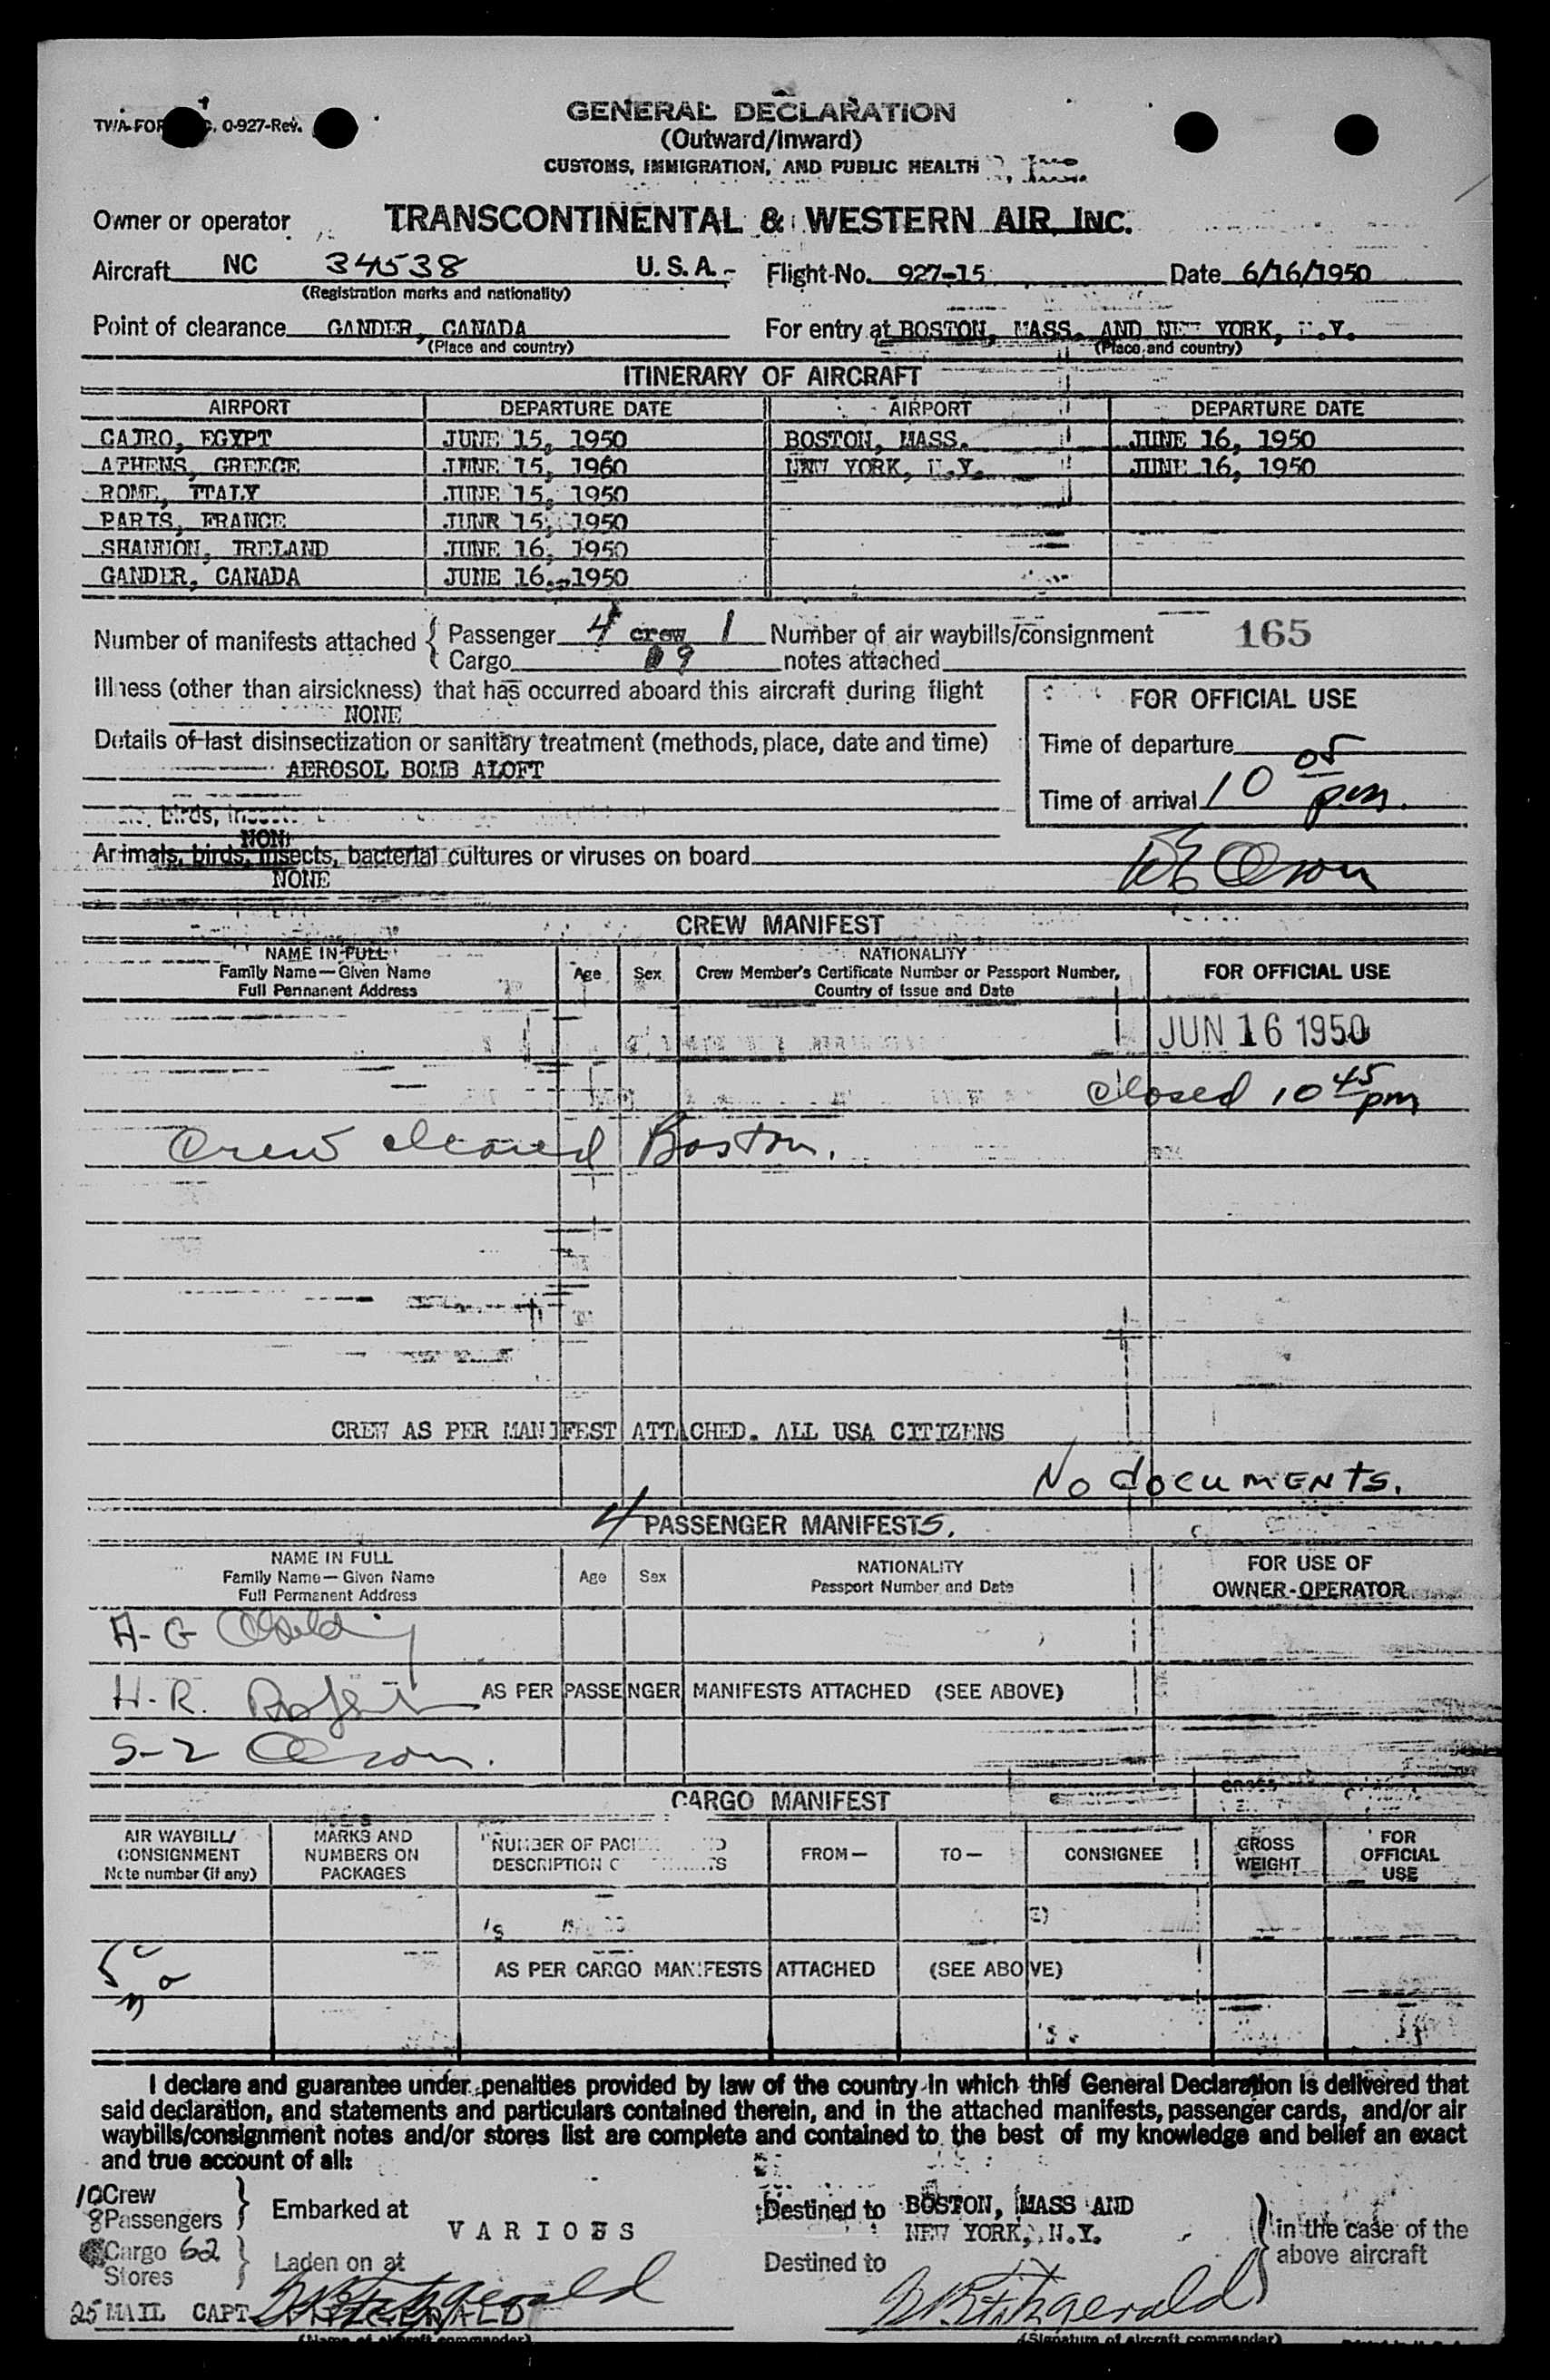 GENERAL DECLARATION
TWA-FOR O-927-Rev.
(Outward/Inward)
CUSTOMS, IMMIGRATION, AND PUBLIC HEALTH
Owner or operator TRANSCONTINENTAL & WESTERN AIR, INC.
Aircraft NC 34538 U.S.A. Flight No. 927-15 Date 6/16/1950
(Registration marks and nationality)
Point of clearance GANDER, CANADA For entry at BOSTON, MASS. AND NEW YORK, N.Y.
(Place and country) (Place and country)
ITINERARY OF AIRCRAFT
AIRPORT DEPARTURE DATE AIRPORT DEPARTURE DATE
CAIRO, EGYPT JUNE 15, 1950 BOSTON, MASS. JUNE 16, 1950
ATHENS, GREECE JUNE 15, 1960 NEW YORK, N.Y. JUNE 16, 1950
ROME, ITALY JUNE 15, 1950
PARIS, FRANCE JUNR 15, 1950
SHANNON, IRELAND JUNE 16, 1950
GANDER, CANADA JUNE 16, 1950
Number of manifests attached { Passenger 4 crew 1 Number of air waybills/consignment 165
Cargo 9 notes attached
Illness (other than airsickness) that has occurred aboard this aircraft during flight
NONE
FOR OFFICIAL USE
Details of last disinsectization or sanitary treatment (methods, place, date and time)
AEROSOL BOMB ALOFT
Time of departure
Time of arrival 10 05 pm.
birds,
NONE
Animals, birds, insects, bacterial cultures or viruses on board
NONE
CREW MANIFEST
NAME IN FULL NATIONALITY
Family Name—Given Name Age Sex Crew Member's Certificate Number or Passport Number, FOR OFFICIAL USE
Full Permanent Address Country of Issue and Date
JUN 16 1950
closed 10 45 pm
Crew cleared Boston.
CREW AS PER MANIFEST ATTACHED. ALL USA CITIZENS
No documENts.
4 PASSENGER MANIFESTS.
NAME IN FULL NATIONALITY FOR USE OF
Family Name—Given Name Age Sex Passport Number and Date OWNER-OPERATOR
Full Permanent Address
A-G
H.R. AS PER PASSENGER MANIFESTS ATTACHED (SEE ABOVE)
S-2
CARGO MANIFEST
AIR WAYBILL/ MARKS AND FOR
CONSIGNMENT NUMBERS ON NUMBER OF FROM— TO— CONSIGNEE GROSS OFFICIAL
Note number (if any) PACKAGES DESCRIPTION WEIGHT USE
AS PER CARGO MANIFESTS ATTACHED (SEE ABOVE)
I declare and guarantee under penalties provided by law of the country in which this General Declaration is delivered that
said declaration, and statements and particulars contained therein, and in the attached manifests, passenger cards, and/or air
waybills/consignment notes and/or stores list are complete and contained to the best of my knowledge and belief an exact
and true account of all:
10 Crew
8 Passengers } Embarked at VARIOUS Destined to BOSTON, MASS AND NEW YORK, N.Y. } in the case of the
Cargo 62 } Laden on at Destined to above aircraft
Stores
25 MAIL CAPT. FITZGERALD
(Name of aircraft commander) (Signature of aircraft commander)